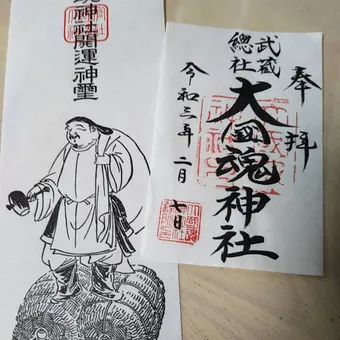 神社開運神璽
奉拝
武蔵
總社
大國魂神社
令和三年二月七日